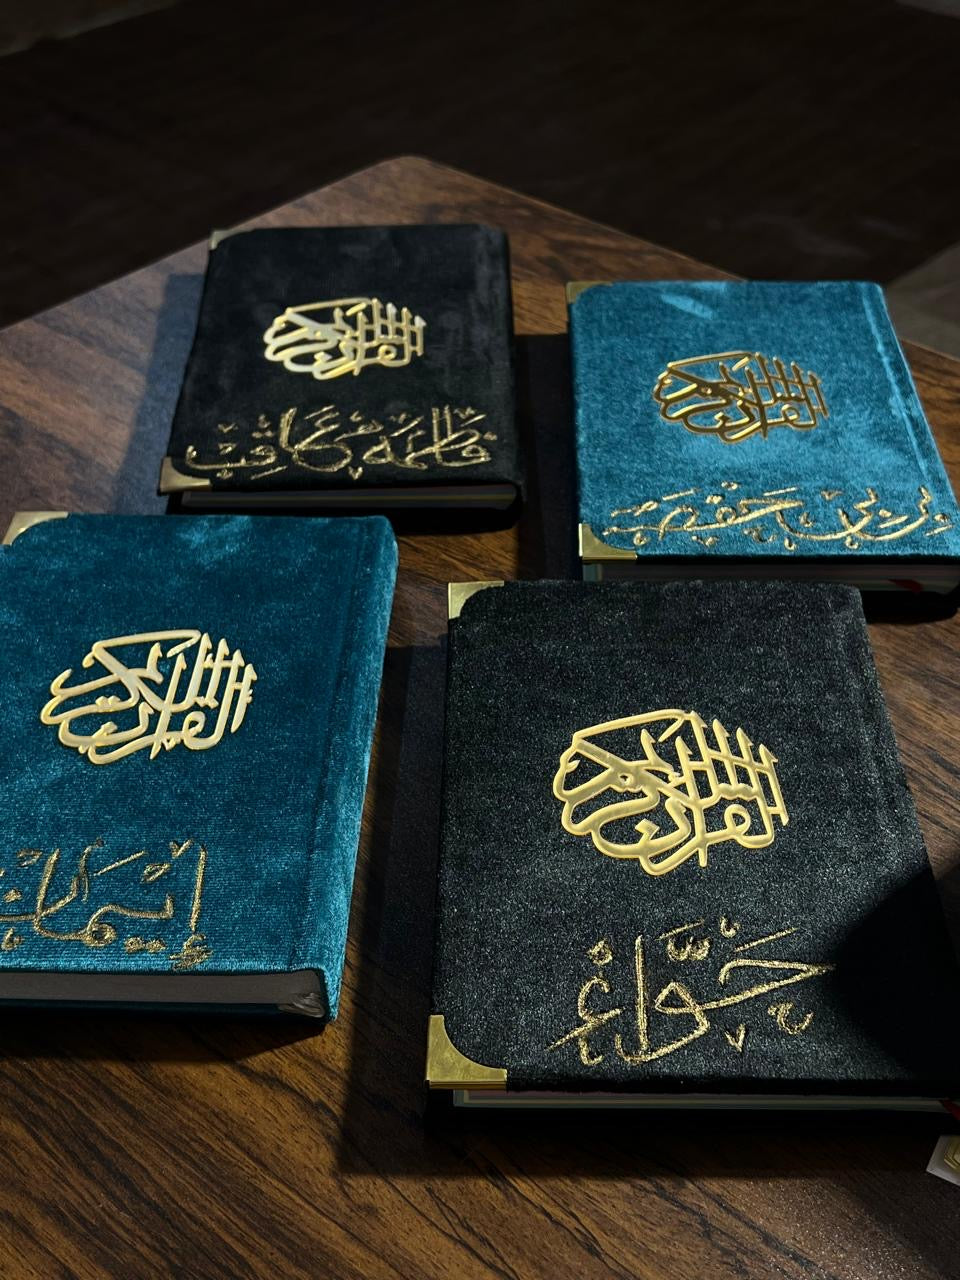 القرآن الكريم
فاطمة عاقب
القرآن الكريم
بی بی حفیصہ
القرآن الكريم
إيمان
القرآن الكريم
حواء